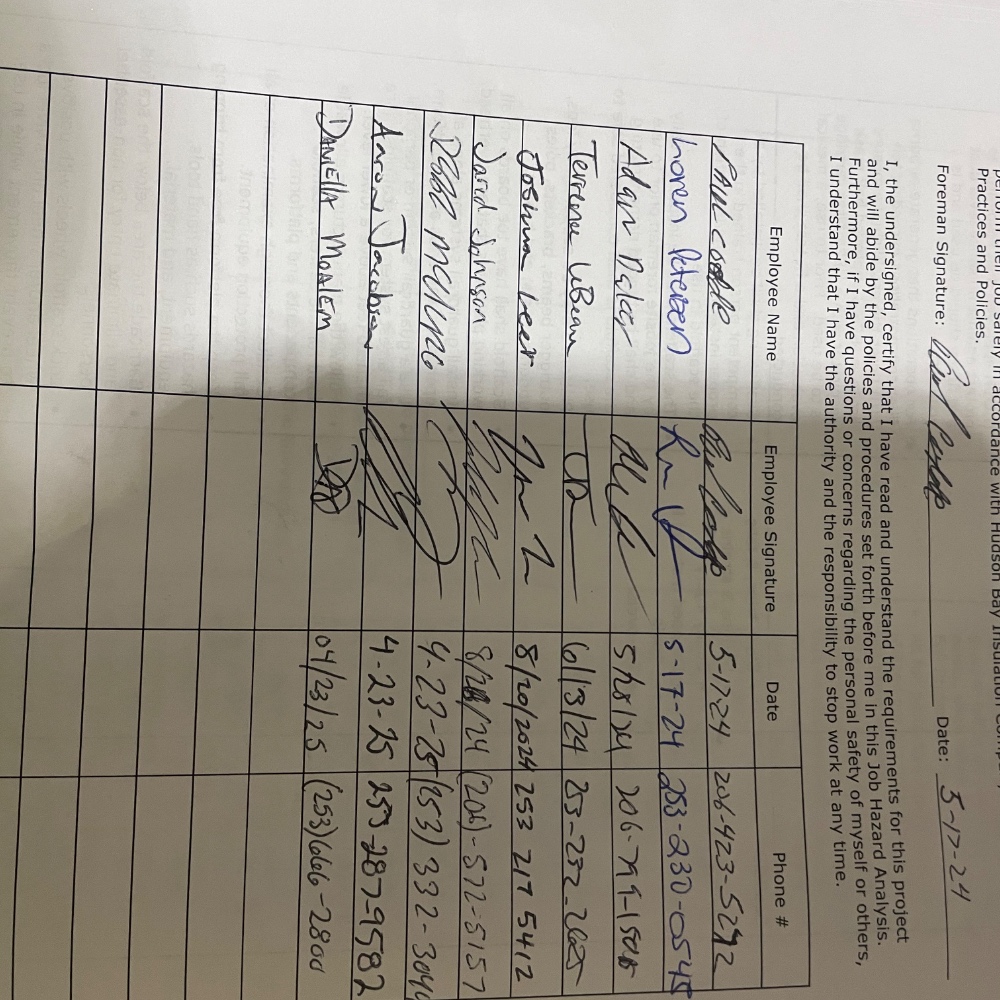 perform their job safely in accordance with Hudson Bay Insulation Company
Practices and Policies.
Foreman Signature: Date: 5-17-24
I, the undersigned, certify that I have read and understand the requirements for this project
and will abide by the policies and procedures set forth before me in this Job Hazard Analysis.
Furthermore, if I have questions or concerns regarding the personal safety of myself or others,
I understand that I have the authority and the responsibility to stop work at any time.
Employee Name Employee Signature Date Phone #
PAUL 5-17-24 206-423-5292
Loren Petersen 5-17-24 253-230-0545
Adan 5/28/24 206-799-1508
Terrence LeBeau 6/13/24 253-232-2025
Joshua Leer 8/20/2024 253 217 5412
Jarid Johnson 8/28/24 (206)-572-5157
4-23-25 (953) 332-3040
Aaron Jacobson 4-23-25 253-287-9582
DANIELLA MOALEM 04/23/25 (253)666-2800